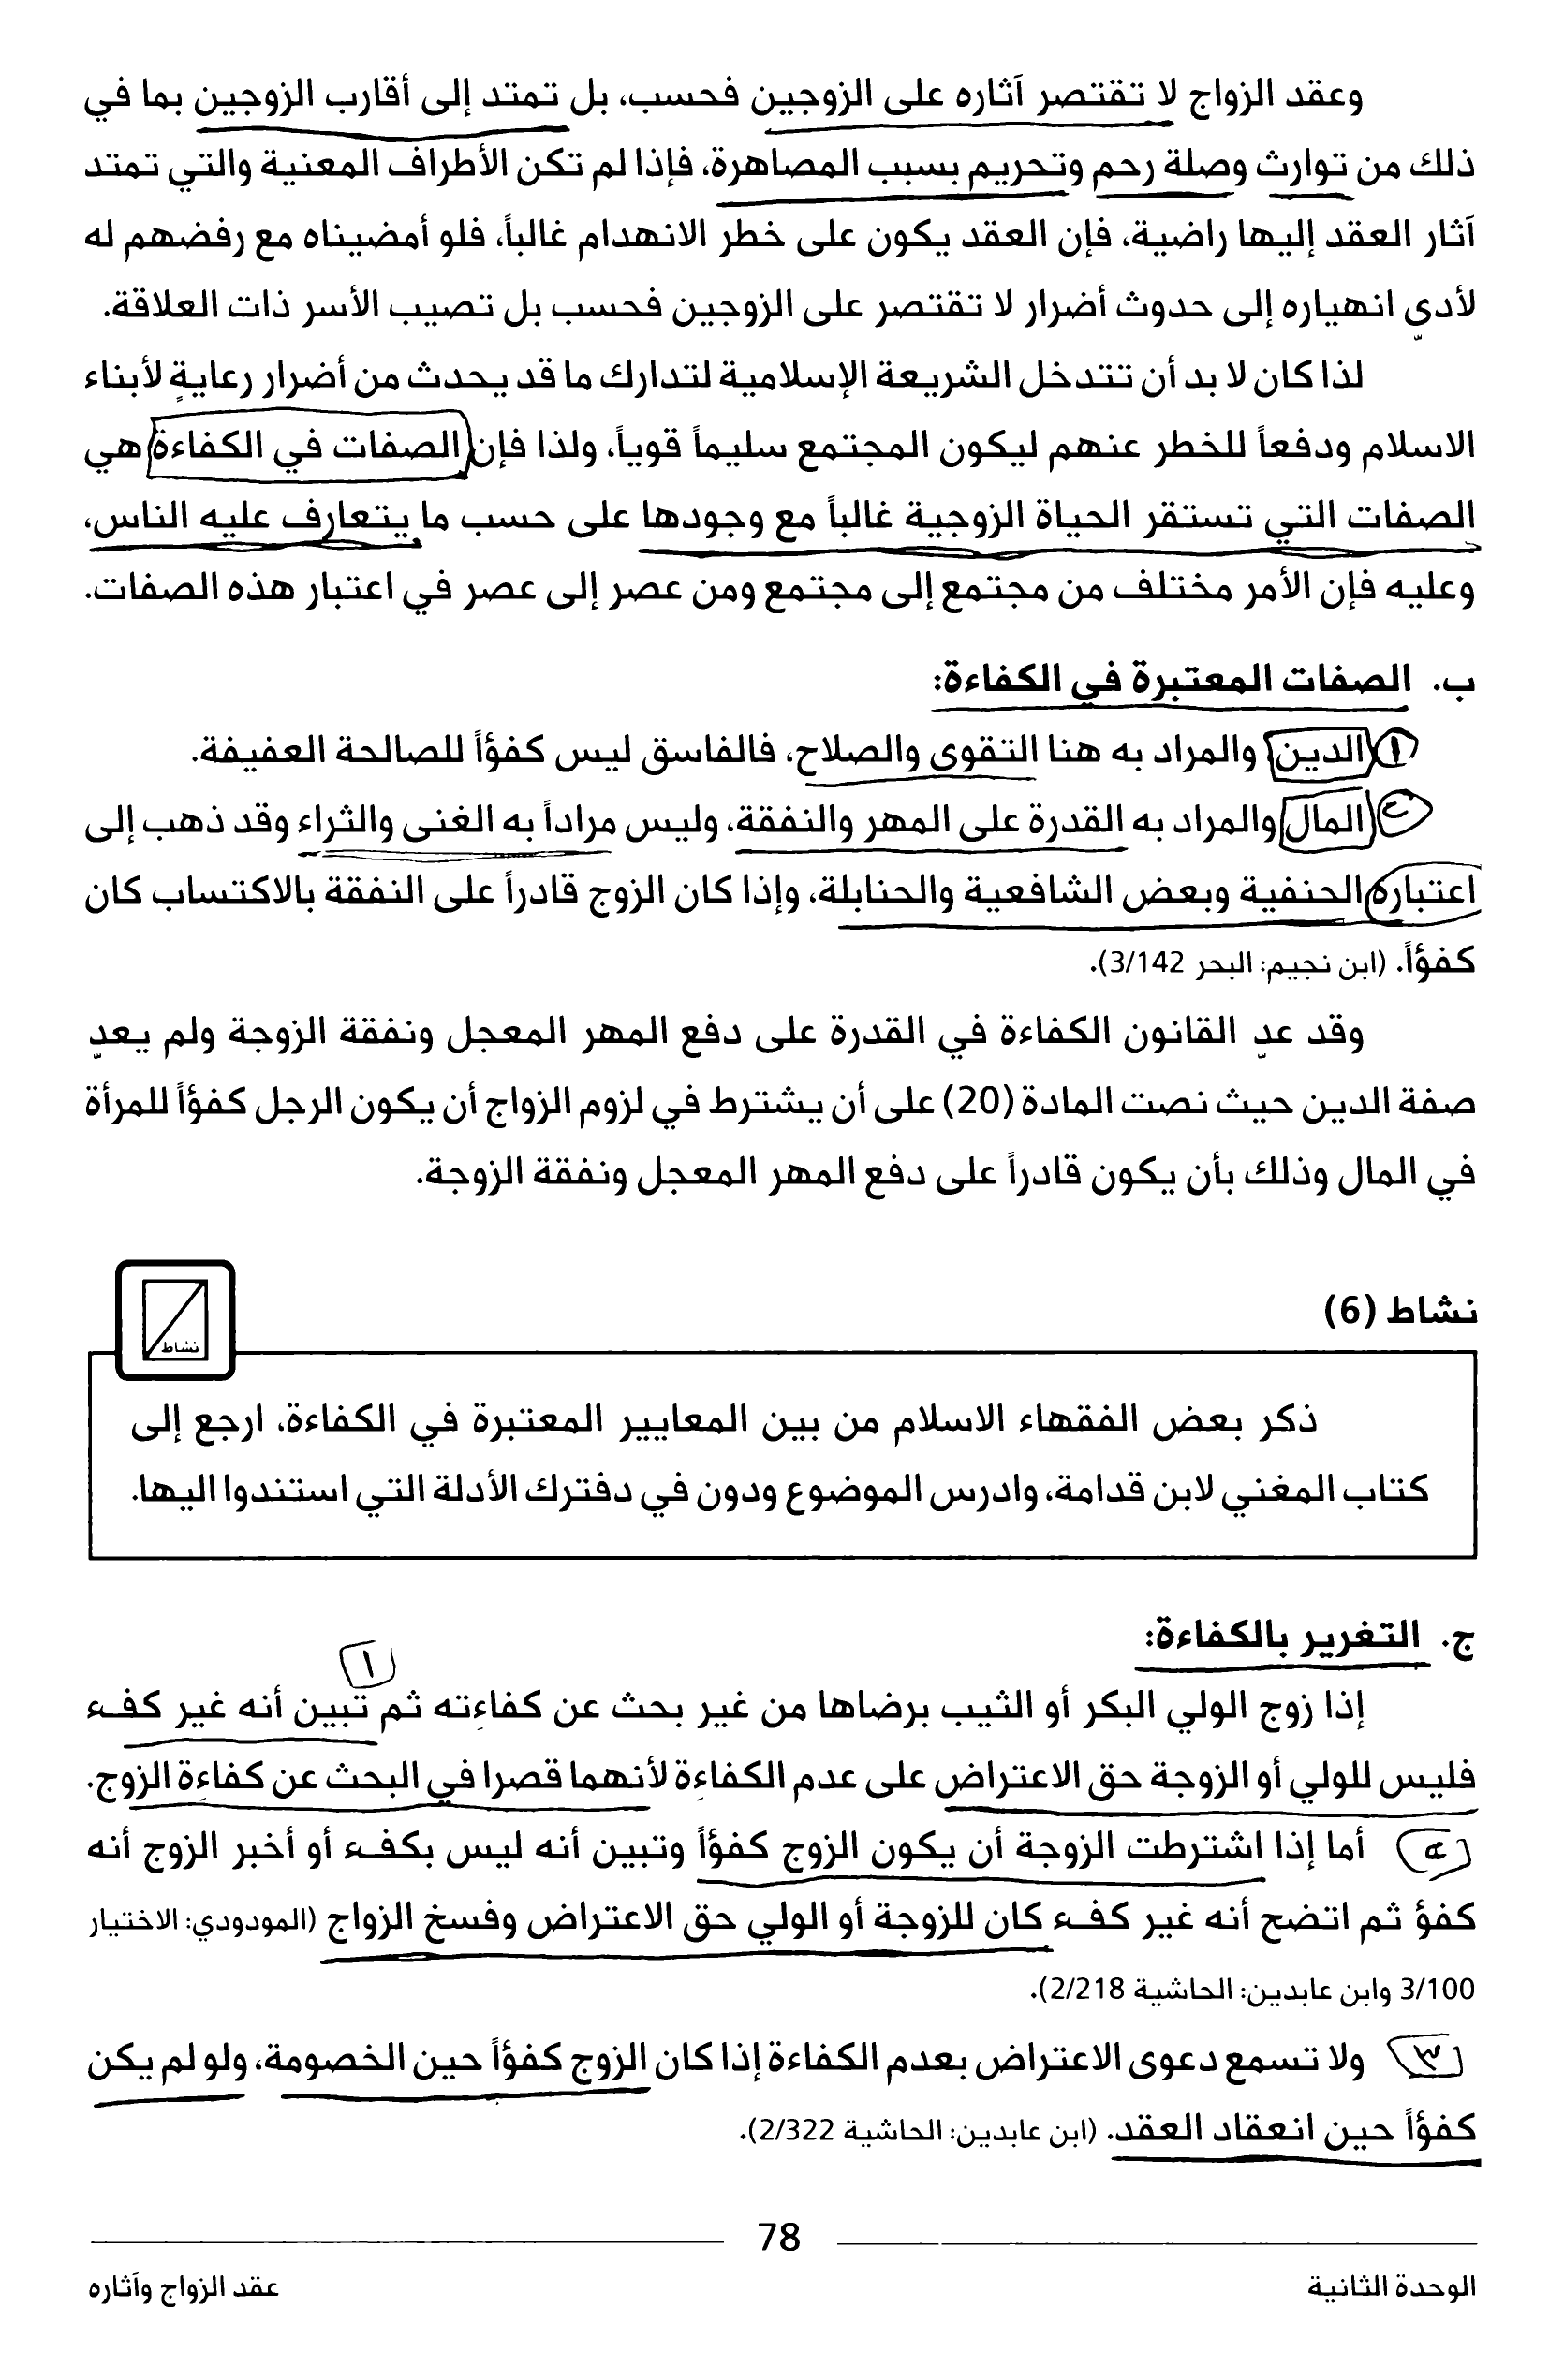 وعقد الزواج لا تقتصر آثاره على الزوجين فحسب، بل تمتد إلى أقارب الزوجين بما في
ذلك من توارث وصلة رحم وتحريم بسبب المصاهرة، فإذا لم تكن الأطراف المعنية والتي تمتد
آثار العقد إليها راضية، فإن العقد يكون على خطر الانهدام غالباً، فلو أمضيناه مع رفضهم له
لأدي انهياره إلى حدوث أضرار لا تقتصر على الزوجين فحسب بل تصيب الأسر ذات العلاقة.
لذا كان لا بد أن تتدخل الشريعة الإسلامية لتدارك ما قد يحدث من أضرار رعاية لأبناء
الاسلام ودفعاً للخطر عنهم ليكون المجتمع سليماً قوياً، ولذا فإن الصفات في الكفاءة هي
الصفات التي تستقر الحياة الزوجية غالباً مع وجودها على حسب ما يتعارف عليه الناس،
وعليه فإن الأمر مختلف من مجتمع إلى مجتمع ومن عصر إلى عصر في اعتبار هذه الصفات.
ب. الصفات المعتبرة في الكفاءة:
١ الدين والمراد به هنا التقوى والصلاح، فالفاسق ليس كفؤاً للصالحة العفيفة.
٢ المال والمراد به القدرة على المهر والنفقة، وليس مراداً به الغنى والثراء وقد ذهب إلى
اعتباره الحنفية وبعض الشافعية والحنابلة، وإذا كان الزوج قادراً على النفقة بالاكتساب كان
كفؤاً. (ابن نجيم: البحر 3/142).
وقد عدِّ القانون الكفاءة في القدرة على دفع المهر المعجل ونفقة الزوجة ولم يعدِّ
صفة الدين حيث نصت المادة (20) على أن يشترط في لزوم الزواج أن يكون الرجل كفؤاً للمرأة
في المال وذلك بأن يكون قادراً على دفع المهر المعجل ونفقة الزوجة.
نشاط (6)
نشاط
ذكر بعض الفقهاء الاسلام من بين المعايير المعتبرة في الكفاءة، ارجع إلى
كتاب المغني لابن قدامة، وادرس الموضوع ودون في دفترك الأدلة التي استندوا اليها.
ج. التغرير بالكفاءة:
١
إذا زوج الولي البكر أو الثيب برضاها من غير بحث عن كفاءته ثم تبين أنه غير كفء
فليس للولي أو الزوجة حق الاعتراض على عدم الكفاءة لأنهما قصرا في البحث عن كفاءة الزوج.
٢ أما إذا اشترطت الزوجة أن يكون الزوج كفؤاً وتبين أنه ليس بكفء أو أخبر الزوج أنه
كفؤ ثم اتضح أنه غير كفء كان للزوجة أو الولي حق الاعتراض وفسخ الزواج (المودودي: الاختيار
3/100 وابن عابدين: الحاشية 2/218).
٣ ولا تسمع دعوى الاعتراض بعدم الكفاءة إذا كان الزوج كفؤاً حين الخصومة، ولو لم يكن
كفؤاً حين انعقاد العقد. (ابن عابدين: الحاشية 2/322).
78
الوحدة الثانية
عقد الزواج وآثاره